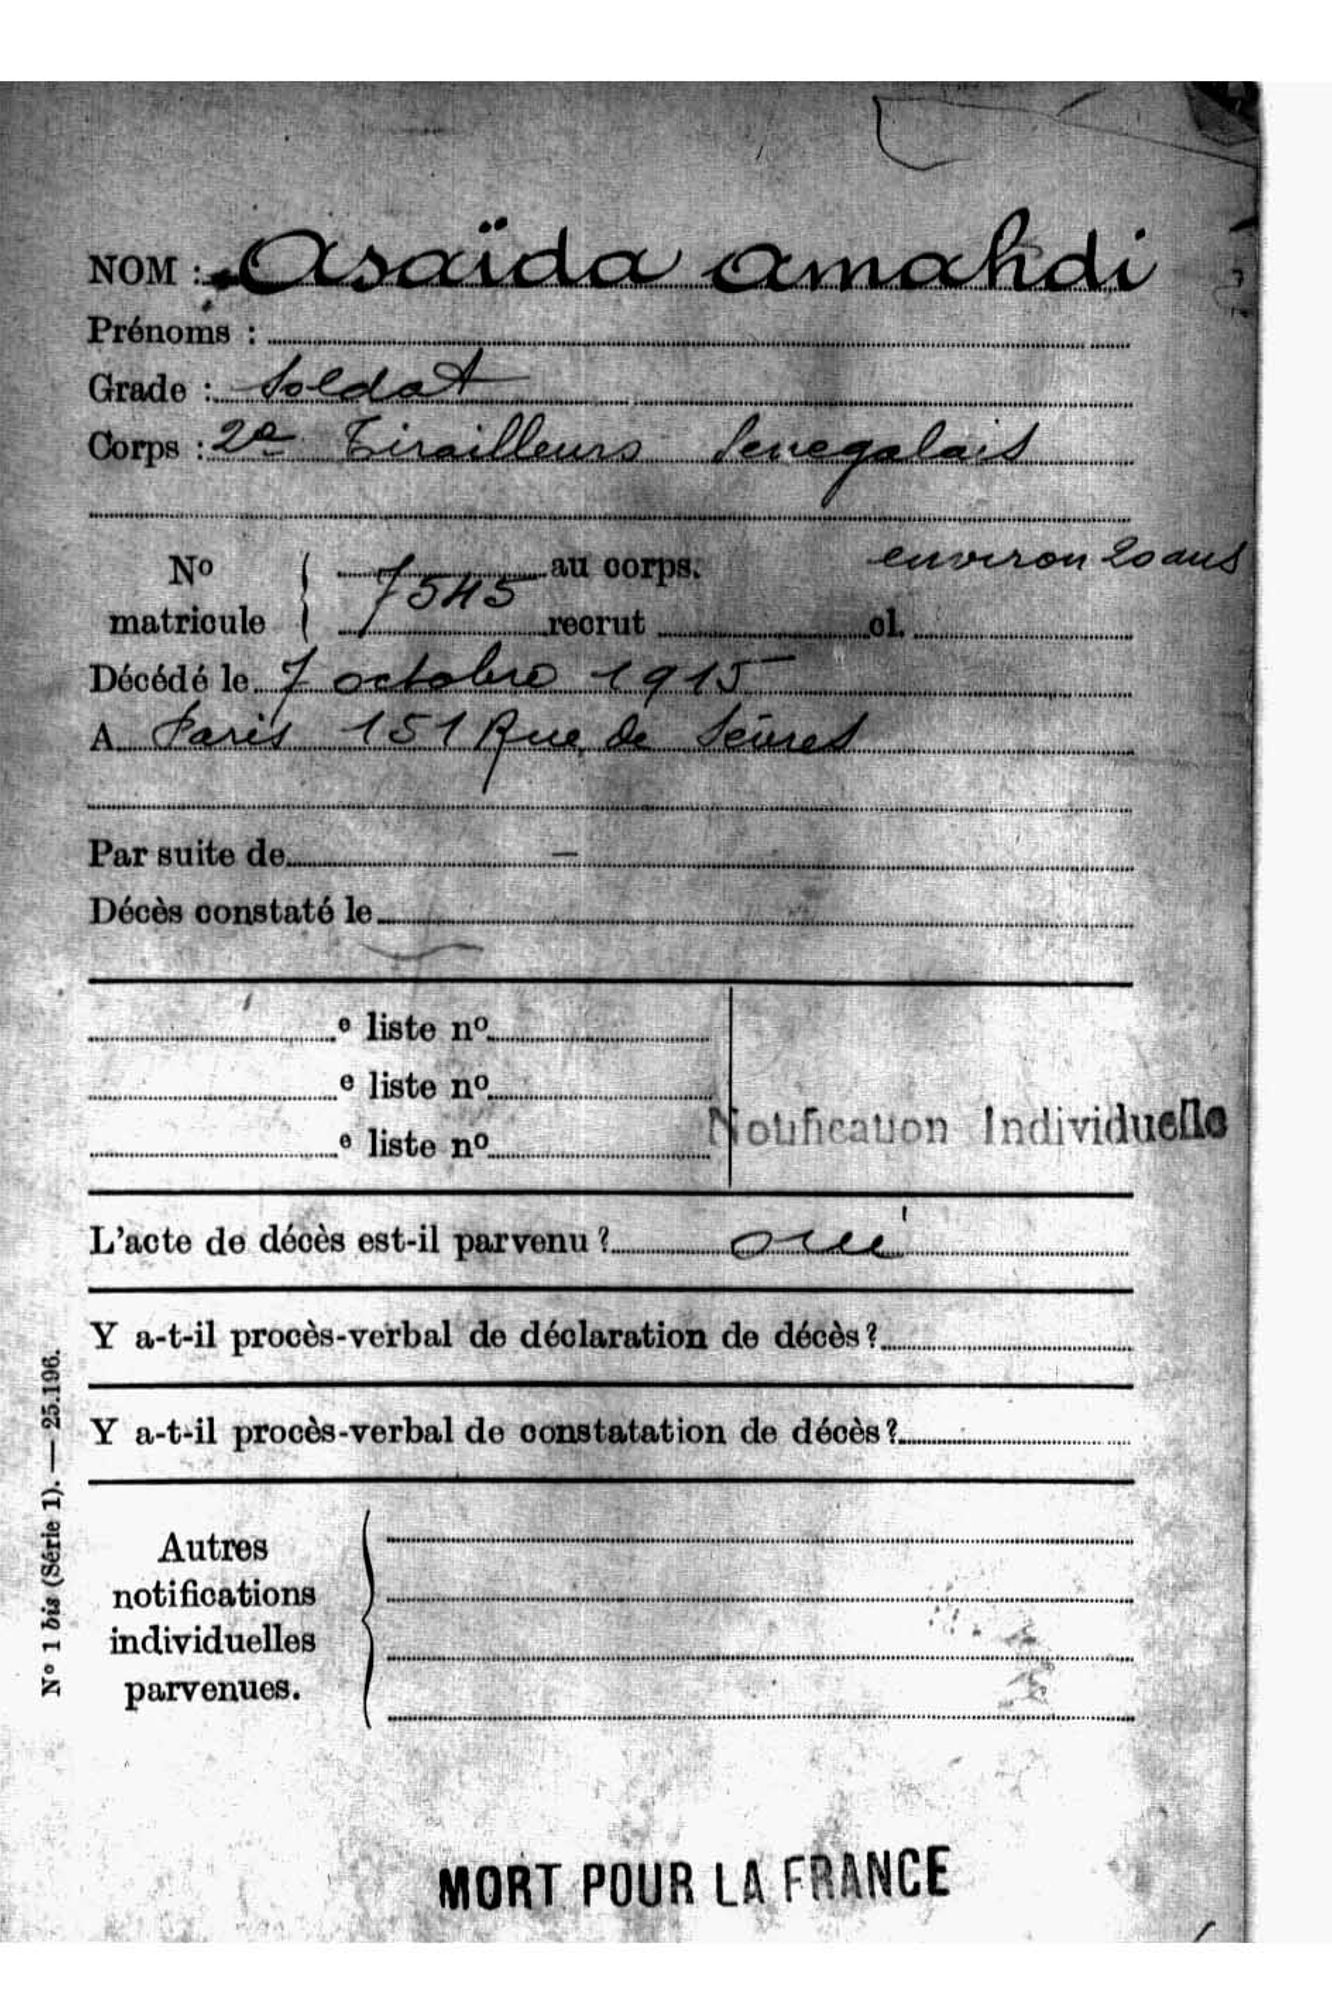 NOM : Asaïda Amahdi
Prénoms :
Grade : Soldat
Corps : 2e Tirailleurs Senegalais
environ 20 ans
No matricule { 7545 au corps.
recrut cl.
Décédé le 7 octobre 1915
A Paris 151 Rue de Sèvres
Par suite de —
Décès constaté le
e liste no
e liste no
e liste no
Notification Individuelle
L'acte de décès est-il parvenu ? oui
Y a-t-il procès-verbal de déclaration de décès ?
Y a-t-il procès-verbal de constatation de décès ?
Autres
notifications
individuelles
parvenues.
No 1 bis (Série 1). — 25.106.
MORT POUR LA FRANCE